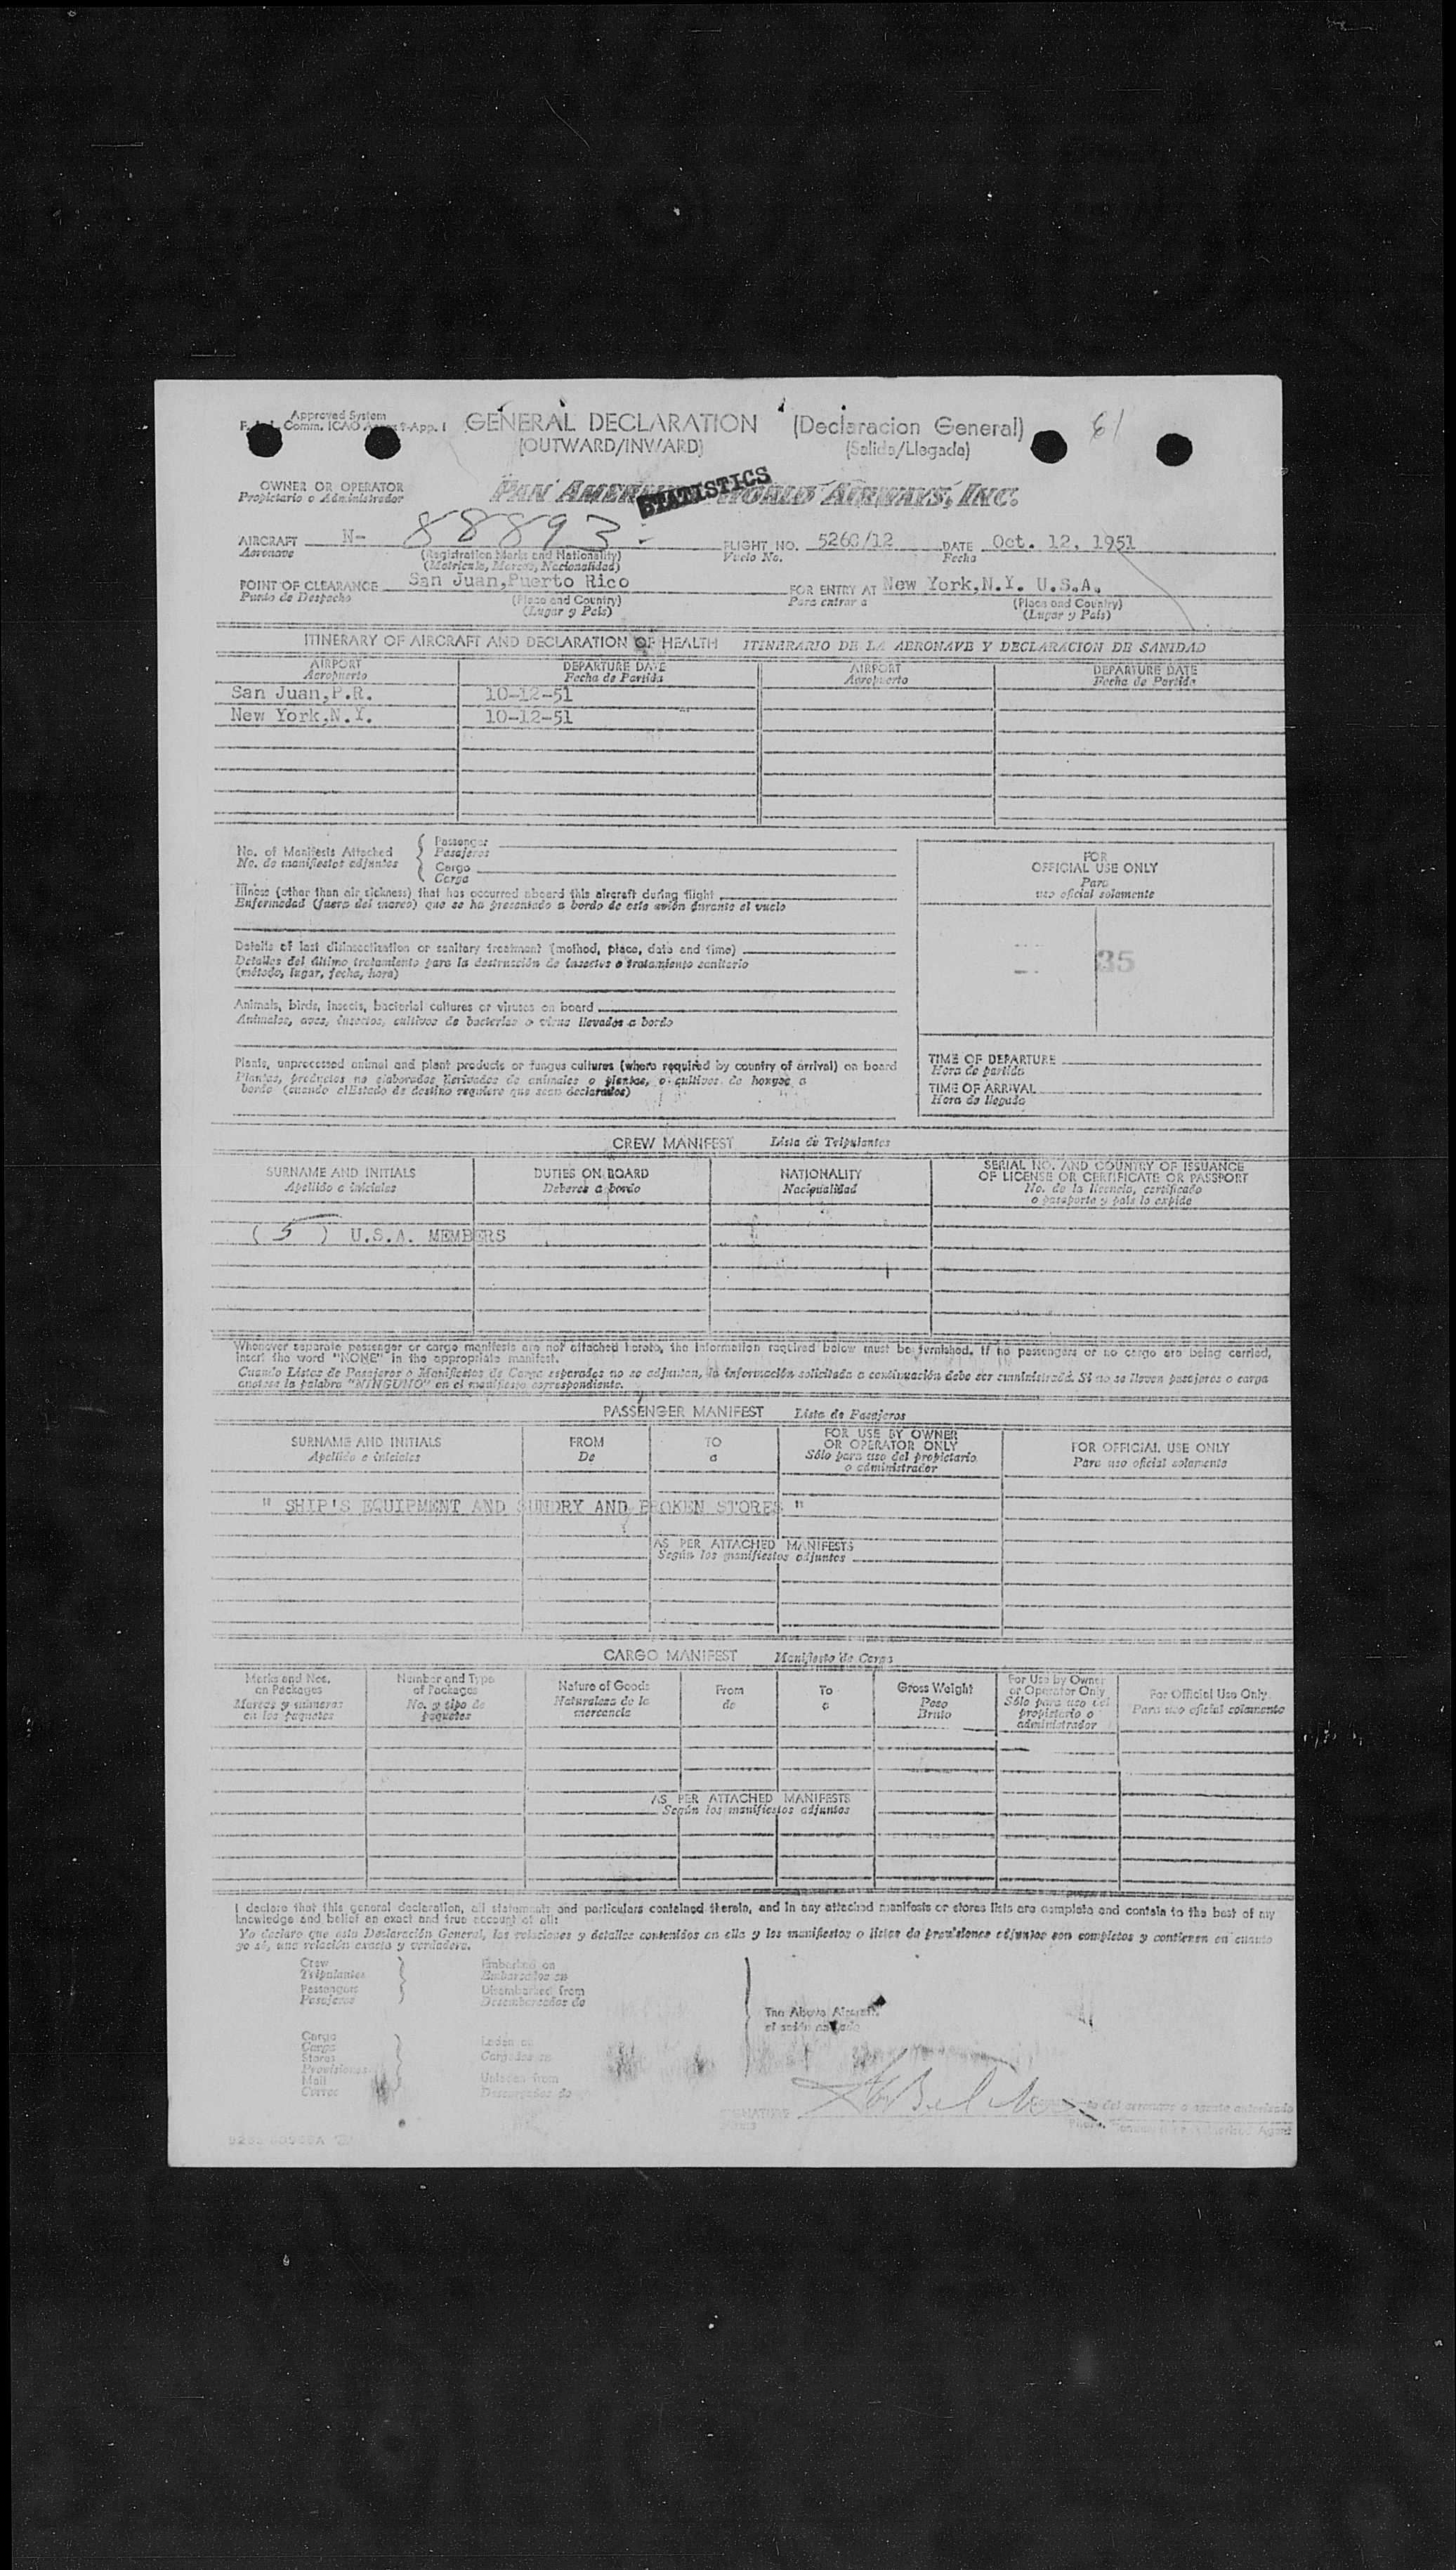 Approved System
Comm. ICAO Annex 9-App. 1
GENERAL DECLARATION (Declaracion General)
(OUTWARD/INWARD) (Salida/Llegada)
61
OWNER OR OPERATOR
Propietario o Administrador
PAN AMERICAN WORLD AIRWAYS, INC.
STATISTICS
AIRCRAFT N- 88893 FLIGHT NO. 5260/12 DATE Oct. 12, 1951
Aeronave (Registration Marks and Nationality) Vuelo No. Fecha
(Matricula, Marcas, Nacionalidad)
POINT OF CLEARANCE San Juan,Puerto Rico FOR ENTRY AT New York,N.Y. U.S.A.
Punto de Despacho (Place and Country) Para entrar a (Place and Country)
(Lugar y Pais) (Lugar y Pais)
ITINERARY OF AIRCRAFT AND DECLARATION OF HEALTH ITINERARIO DE LA AERONAVE Y DECLARACION DE SANIDAD
AIRPORT DEPARTURE DATE AIRPORT DEPARTURE DATE
Aeropuerto Fecha de Partida Aeropuerto Fecha de Partida
San Juan,P.R. 10-12-51
New York,N.Y. 10-12-51
No. of Manifests Attached
No. de manifiestos adjuntos
Passenger
Pasajeros
Cargo
Carga
Illness (other than air sickness) that has occurred aboard this aircraft during flight
Enfermedad (fuera del mareo) que se ha presentado a bordo de este avión durante el vuelo
Details of last disinsectization or sanitary treatment (method, place, date and time)
Detalles del último tratamiento para la destrucción de insectos o tratamiento sanitario
(método, lugar, fecha, hora)
Animals, birds, insects, bacterial cultures or viruses on board
Animales, aves, insectos, cultivos de bacterias o virus llevados a bordo
Plants, unprocessed animal and plant products or fungus cultures (where required by country of arrival) on board
Plantas, productos no elaborados derivados de animales o plantas, o cultivos de hongos a
bordo (cuando el Estado de destino requiere que sean declarados)
FOR
OFFICIAL USE ONLY
Para
uso oficial solamente
35
TIME OF DEPARTURE
Hora de partida
TIME OF ARRIVAL
Hora de llegada
CREW MANIFEST Lista de Tripulantes
SURNAME AND INITIALS DUTIES ON BOARD NATIONALITY SERIAL NO. AND COUNTRY OF ISSUANCE
OF LICENSE OR CERTIFICATE OR PASSPORT
Apellido e iniciales Deberes a bordo Nacionalidad No. de la licencia, certificado
o pasaporte y pais lo expide
( 5 ) U.S.A. MEMBERS
Whenever separate passenger or cargo manifests are not attached hereto, the information required below must be furnished. If no passengers or no cargo are being carried,
insert the word "NONE" in the appropriate manifest.
Cuando Listas de Pasajeros o Manifiestos de Carga separados no se adjuntan, la información solicitada a continuación debe ser suministrada. Si no se llevan pasajeros o carga
anótese la palabra "NINGUNO" en el manifiesto correspondiente.
PASSENGER MANIFEST Lista de Pasajeros
SURNAME AND INITIALS FROM TO FOR USE BY OWNER
OR OPERATOR ONLY FOR OFFICIAL USE ONLY
Apellido e iniciales De a Sólo para uso del propietario
o administrador Para uso oficial solamente
" SHIP'S EQUIPMENT AND SUNDRY AND BROKEN STORES "
AS PER ATTACHED MANIFESTS
Según los manifiestos adjuntos
CARGO MANIFEST Manifiesto de Carga
Marks and Nos.
on Packages
Marcas y números
en los paquetes
Number and Type
of Packages
No. y tipo de
paquetes
Nature of Goods
Naturaleza de la
mercancia
From
de
To
a
Gross Weight
Peso
Bruto
For Use by Owner
or Operator Only
Sólo para uso del
propietario o
administrador
For Official Use Only
Para uso oficial solamente
AS PER ATTACHED MANIFESTS
Según los manifiestos adjuntos
I declare that this general declaration, all statements and particulars contained therein, and in any attached manifests or stores lists are complete and contain to the best of my
knowledge and belief an exact and true account of all:
Yo declaro que esta Declaración General, las relaciones y detalles contenidos en ella y los manifiestos o listas de provisiones adjuntos son completos y contienen en cuanto
yo sé, una relación exacta y verdadera.
Crew
Tripulantes
Passengers
Pasajeros
Embarked on
Embarcados en
Disembarked from
Desembarcados de
The Above Aircraft.
el avión
Cargo
Carga
Stores
Provisiones
Mail
Correo
Laden on
Cargados en
Unladen from
Descargados de
SIGNATURE
Firma
del aeronave o agente autorizado
Authorized Agent